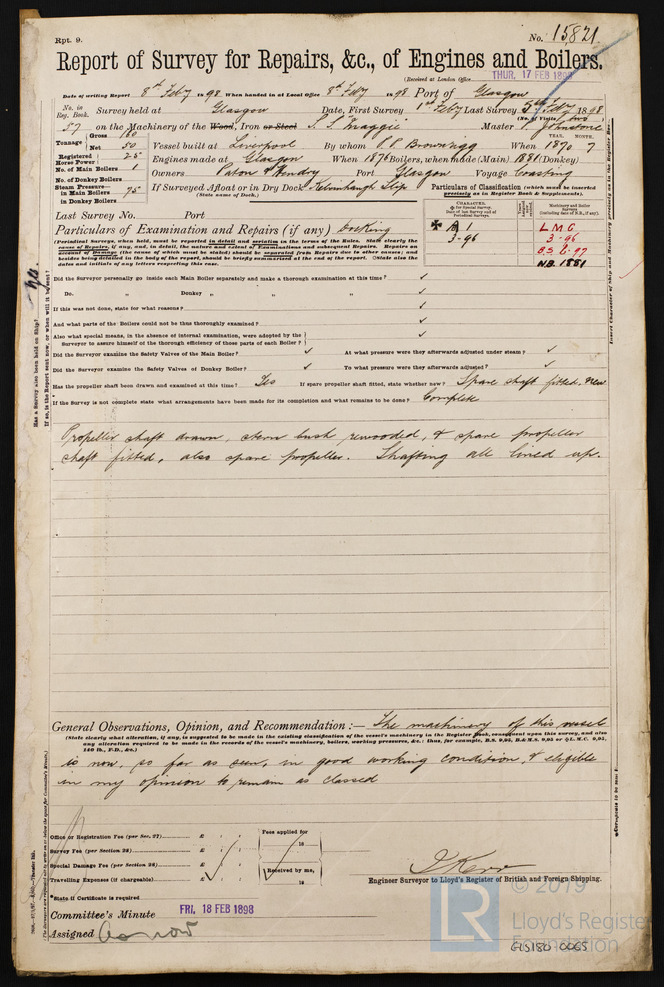 Rpt. 9.
No. 15,821
Report of Survey for Repairs, &c., of Engines and Boilers.
(Received at London Office THUR, 17 FEB 1898
Date of writing Report 8th Feby 1898 When handed in at Local Office 8th Feby 1898 Port of Glasgow
No. in Reg. Book. Survey held at Glasgow Date, First Survey 1st Feby Last Survey 5th Feby 1898
(No. of Visits two)
57 on the Machinery of the Wood, Iron or Steel S.S. Maggie Master P. Johnstone
Tonnage Gross 180 Net 50 Vessel built at Liverpool By whom P.P. Brownrigg When 1870 7
YEAR. MONTH.
Registered Horse Power 25 Engines made at Glasgow When 1876 Boilers, when made (Main) 1881 (Donkey)
No. of Main Boilers 1 Owners Paton & Hendry Port Glasgow Voyage Coasting
No. of Donkey Boilers
Steam Pressure— in Main Boilers 75 If Surveyed Afloat or in Dry Dock Kelvinhaugh Slip
(State name of Dock.)
in Donkey Boilers
Particulars of Classification (which must be inserted precisely as in Register Book & Supplements).
Last Survey No. Port
CHARACTER. for Special Survey. Date of last Survey and of Periodical Surveys.
Machinery and Boiler Surveys (including date of N.B., if any).
Particulars of Examination and Repairs (if any) Docking
✠ A 1
3-96
L.M.C.
3-96
B.S. 6-97
N.B. 1881
(Periodical Surveys, when held, must be reported in detail and seriatim in the terms of the Rules. State clearly the
cause of Repairs, if any, and, in detail, the nature and extent of Examinations and subsequent Repairs. Repairs on
account of Damage (the cause of which must be stated) should be separated from Repairs due to other causes; and
besides being detailed in the body of the report, should be briefly summarised at the end of the report. State also the
dates and initials of any letters respecting this case.
Did the Surveyor personally go inside each Main Boiler separately and make a thorough examination at this time? ✓
Do. " Donkey " " " ✓
If this was not done, state for what reasons? ✓
And what parts of the Boilers could not be thus thoroughly examined? ✓
Also what special means, in the absence of internal examination, were adopted by the
Surveyor to assure himself of the thorough efficiency of those parts of each Boiler? ✓
Did the Surveyor examine the Safety Valves of the Main Boiler? ✓ At what pressure were they afterwards adjusted under steam? ✓
Did the Surveyor examine the Safety Valves of Donkey Boiler? ✓ To what pressure were they afterwards adjusted? ✓
Has the propeller shaft been drawn and examined at this time? Yes If spare propeller shaft fitted, state whether new? Spare shaft fitted. New
If the Survey is not complete state what arrangements have been made for its completion and what remains to be done? Complete
Propeller shaft drawn, stern bush rewooded, & spare propeller
shaft fitted, also spare propeller. Shafting all lined up.
General Observations, Opinion, and Recommendation:— The machinery of this vessel
(State clearly what alteration, if any, is suggested to be made in the existing classification of the vessel's machinery in the Register Book, consequent upon this survey, and also
any alteration required to be made in the records of the vessel's machinery, boilers, working pressures, &c.: thus, for example, B.S. 9,95, B.&M.S. 9,95 or L.M.C. 9,95,
140 lb., F.D., &c.)
is now, so far as seen, in good working condition, & eligible
in my opinion to remain as classed
Office or Registration Fee (per Sec. 27) £ : :
Survey Fee (per Section 28) £ : :
Special Damage Fee (per Section 28) £ : :
Travelling Expenses (if chargeable) £ : :
Fees applied for
18
Received by me,
18
*State if Certificate is required
J Kerr
Engineer Surveyor to Lloyd's Register of British and Foreign Shipping.
Committee's Minute FRI, 18 FEB 1898
Assigned As now
LR
© 2019
Lloyd's Register
Foundation
GLS180 0065
Has a Survey also been held on Ship? Yes.
If so, is the Report sent now, or when will it be sent?
Insert Character of Ship and Machinery precisely as in the Register Book.